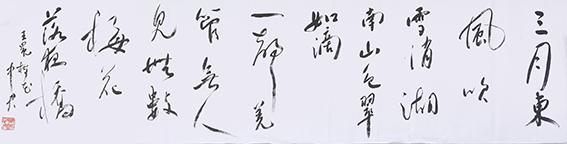 三月東
風吹
雪消湖
南山色翠
如滴
一聲羌
管無人
見無數
梅花
落野橋
王冕